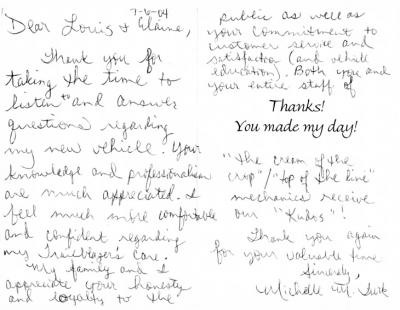 7-6-04
Dear Louis + Elaine,
Thank you for
taking the time to
listen to and answer
questions regarding
my new vehicle. Your
knowledge and professionalism
are much appreciated. I
feel much more comfortable
and confident regarding
my Trailblazer's care.
My family and I
appreciate your honesty
and loyalty to the
public as well as
your commitment to
customer service and
satisfaction (and vehicle
education). Both you and
your entire staff of
Thanks!
You made my day!
"the cream of the
crop"/"top of the line"
mechanics receive
our "Kudos"!
Thank you again
for your valuable time
Sincerely,
Michelle M.